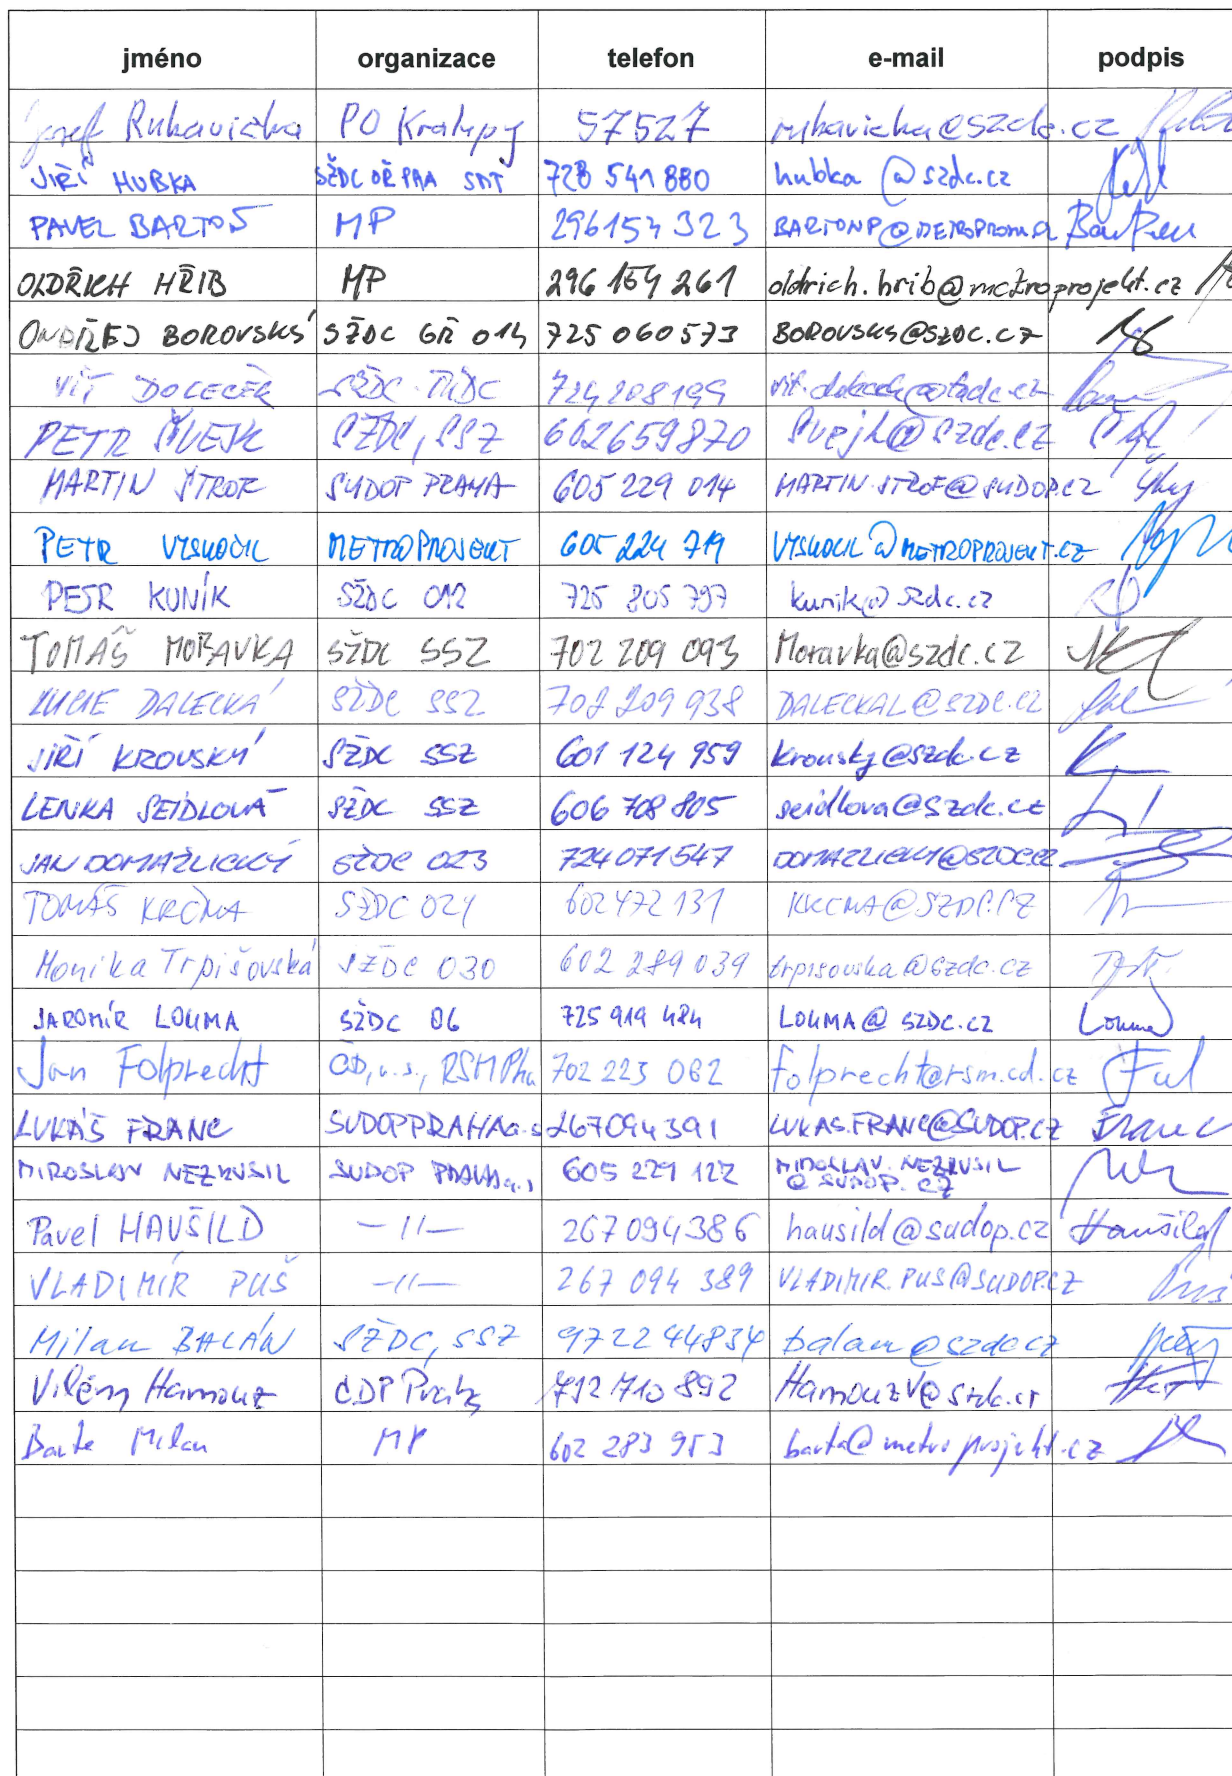 jméno organizace telefon e-mail podpis
Josef Rukavička PO Kralupy 57527 rukavicka@szdc.cz
JIŘÍ HUBKA SŽDC OŘ PHA SMT 728 541 880 hubka @szdc.cz
PAVEL BARTOŇ MP 296154323 BARTONP@METROPROM.CZ
OLDŘICH HŘIB MP 296 154 261 oldrich.hrib@metroprojekt.cz
ONDŘEJ BOROVSKÝ SŽDC GŘ 014 725 060 573 BOROVSKY@SZDC.CZ
VÍT DOLEČEK SŽDC 724 208 199
PETR ŠVEJK SŽDC, SSZ 602659870 Svejk@szdc.cz
MARTIN ŠTROF SUDOP PRAHA 605 229 014 MARTIN.STROF@SUDOP.CZ
PETR VYSKOČIL METROPROJEKT 605 224 719 VYSKOCIL@METROPROJEKT.CZ
PETR KUNÍK SŽDC 012 725 805 797 kunik@szdc.cz
TOMÁŠ MORAVKA SŽDC SSZ 702 209 093 Moravka@szdc.cz
LUCIE DALECKÁ SŽDC SSZ 702 209 938 DALECKAL@SZDC.CZ
JIŘÍ KROUSKÝ SŽDC SSZ 601 124 959 krousky@szdc.cz
LENKA SEIDLOVÁ SŽDC SSZ 606 708 805 seidlova@szdc.cz
JAN DOMAŽLICKÝ SŽDC 023 724071547 DOMAZLICKY@SZDC.CZ
TOMÁŠ KRČMA SŽDC 024 602472131 KRCMA@SZDC.CZ
Monika Trpišovská SŽDC 030 602 289 039 trpisovska@szdc.cz
JAROMÍR LOUMA SŽDC 06 725 919 484 LOUMA@SZDC.CZ Louma
Jan Folprecht ČD, a.s., RSM Pha 702 223 062 folprecht@rsm.cd.cz Ful
LUKÁŠ FRANC SUDOP PRAHA a.s 267094391 LUKAS.FRANC@SUDOP.CZ Franc
MIROSLAV NEZKUSIL SUDOP PRAHA a.s 605 229 122 MIROSLAV.NEZKUSIL
@SUDOP.CZ
Pavel HAUŠILD —11— 267094386 hausild@sudop.cz Haušild
VLADIMÍR PUŠ —11— 267 094 389 VLADIMIR.PUS@SUDOP.CZ Puš
Milan BALÁN SŽDC, SSZ 972244834 balam@szdc.cz
Vilém Hamouz CDP Praha 712 710 892 HamouzV@szdc.cz
Barta Milan MP 602 283 953 barta@metroprojekt.cz